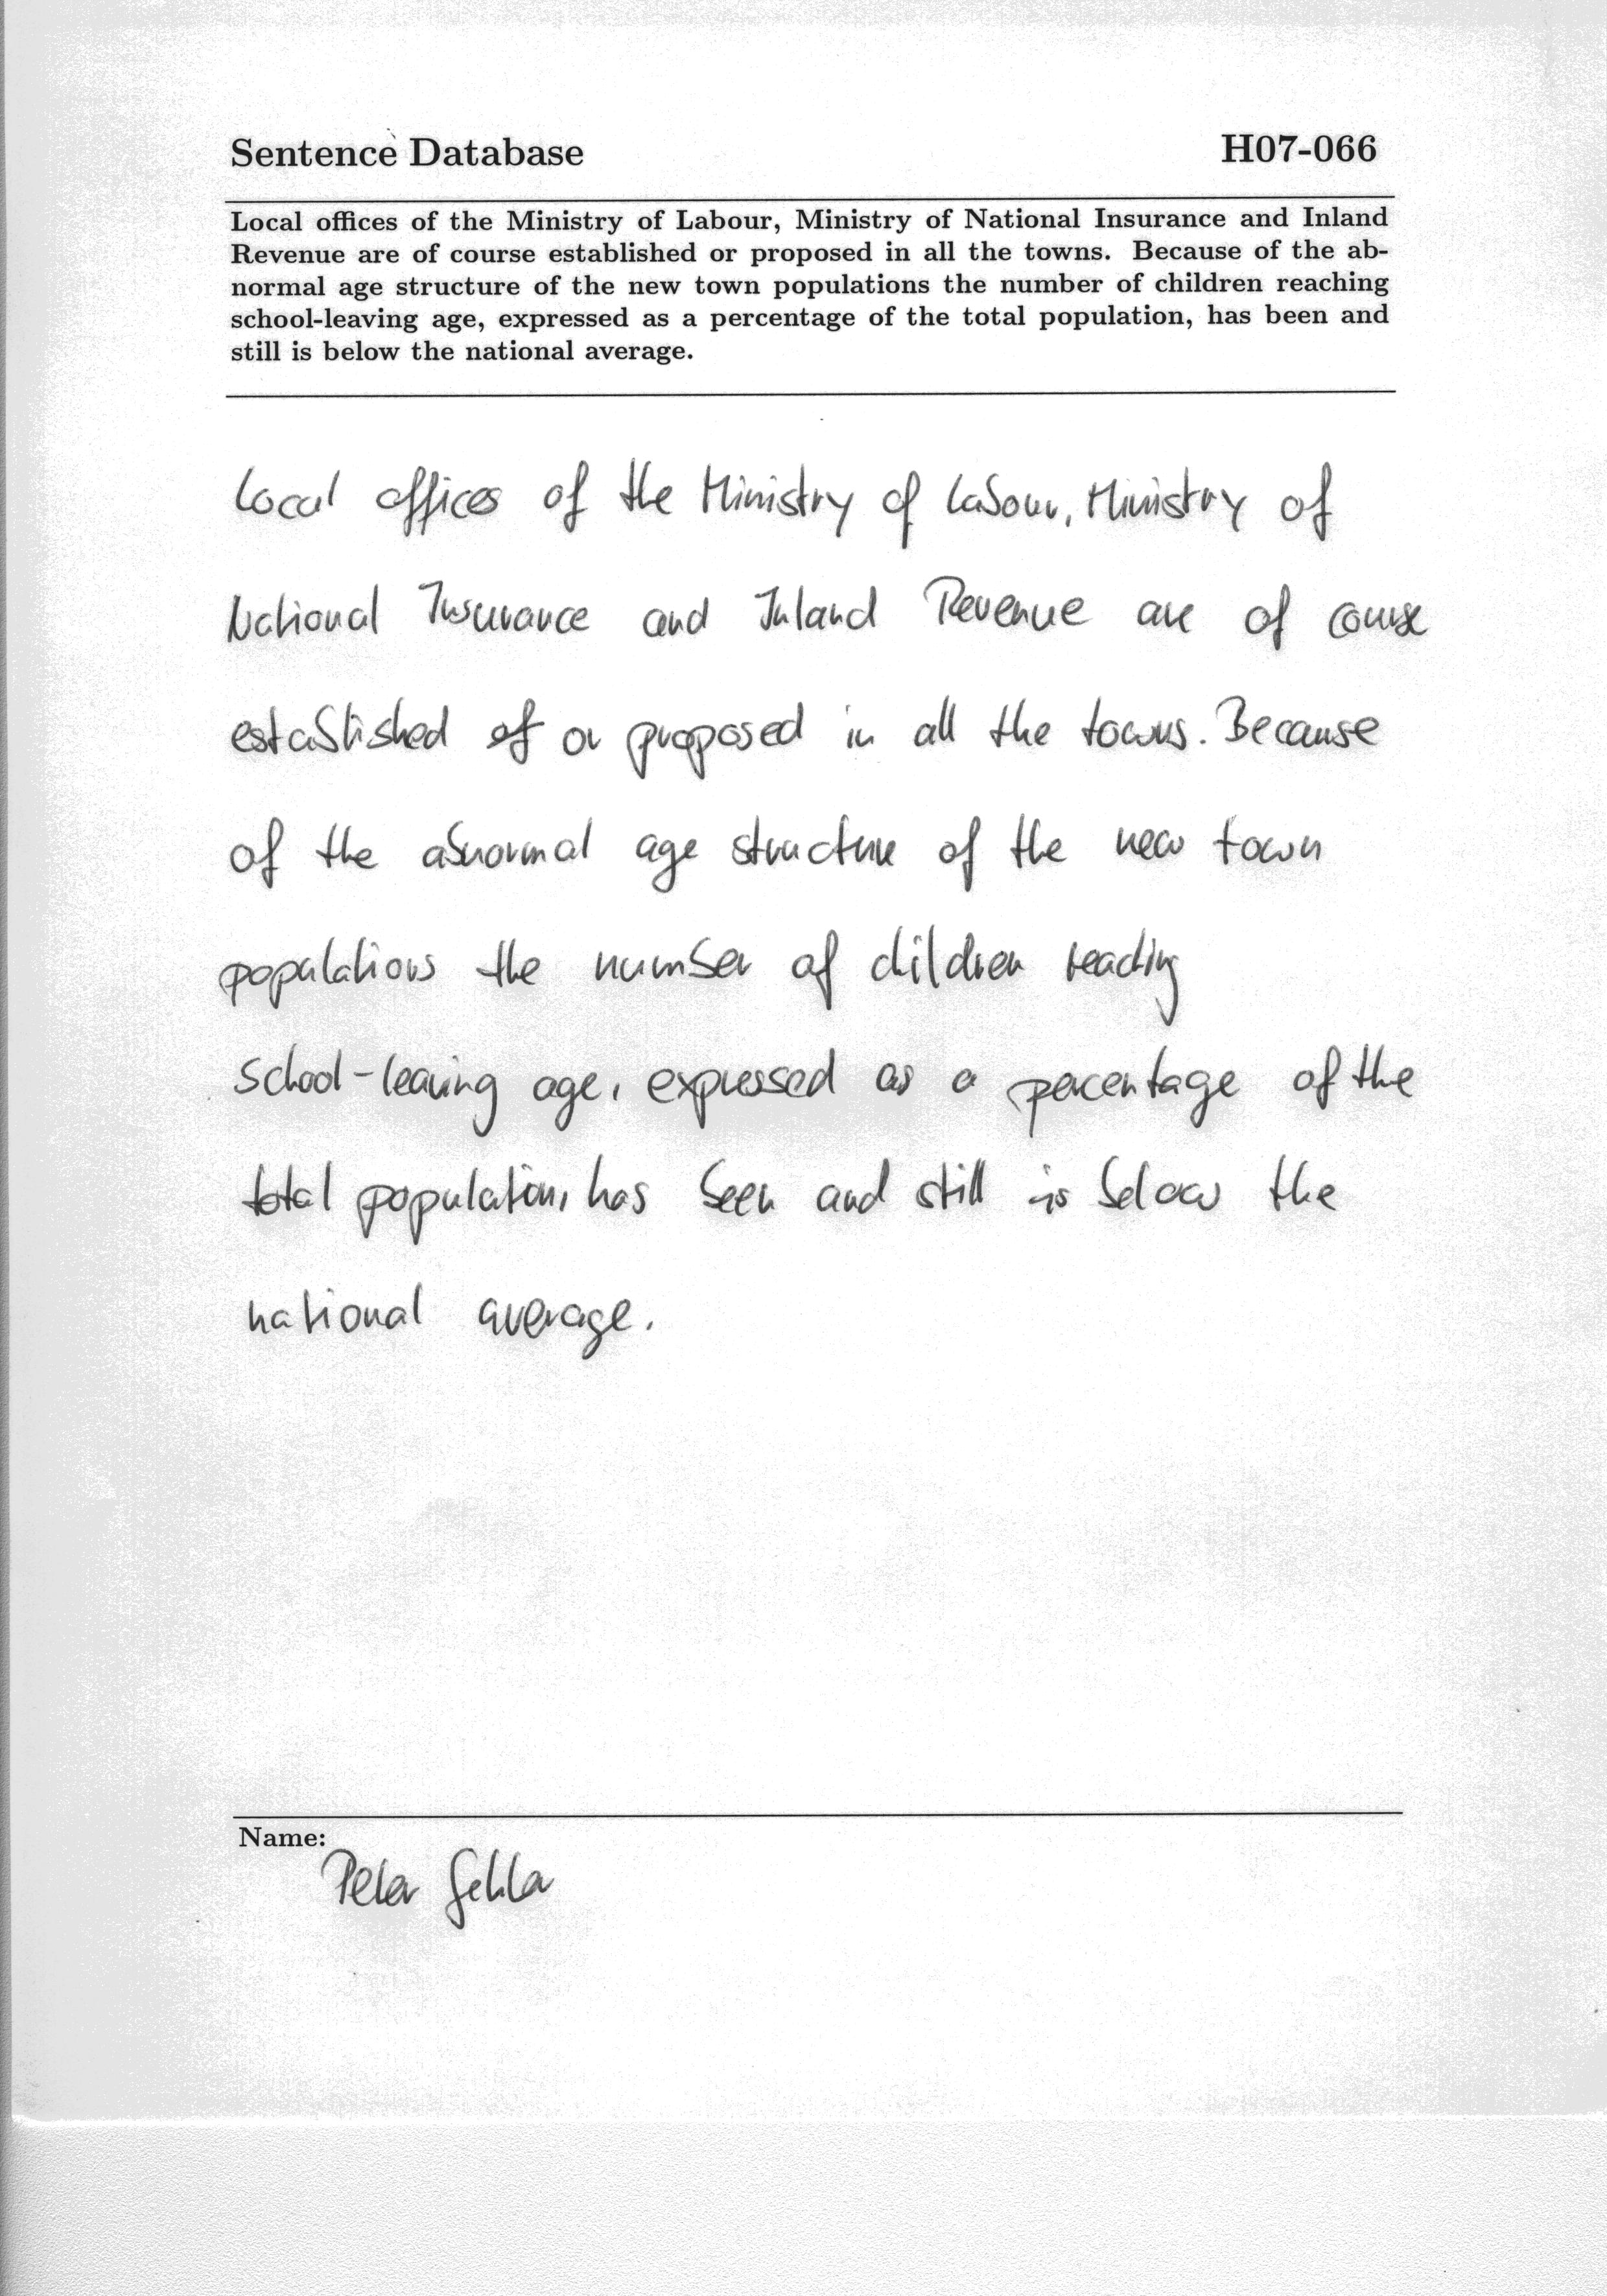 Sentence Database H07-066
Local offices of the Ministry of Labour, Ministry of National Insurance and Inland
Revenue are of course established or proposed in all the towns. Because of the ab-
normal age structure of the new town populations the number of children reaching
school-leaving age, expressed as a percentage of the total population, has been and
still is below the national average.
Local offices of the Ministry of Labour, Ministry of
National Insurance and Inland Revenue are of course
established of or proposed in all the towns. Because
of the abnormal age structure of the new town
populations the number of children reaching
school-leaving age, expressed as a percentage of the
total population, has been and still is below the
national average.
Name:
Peter